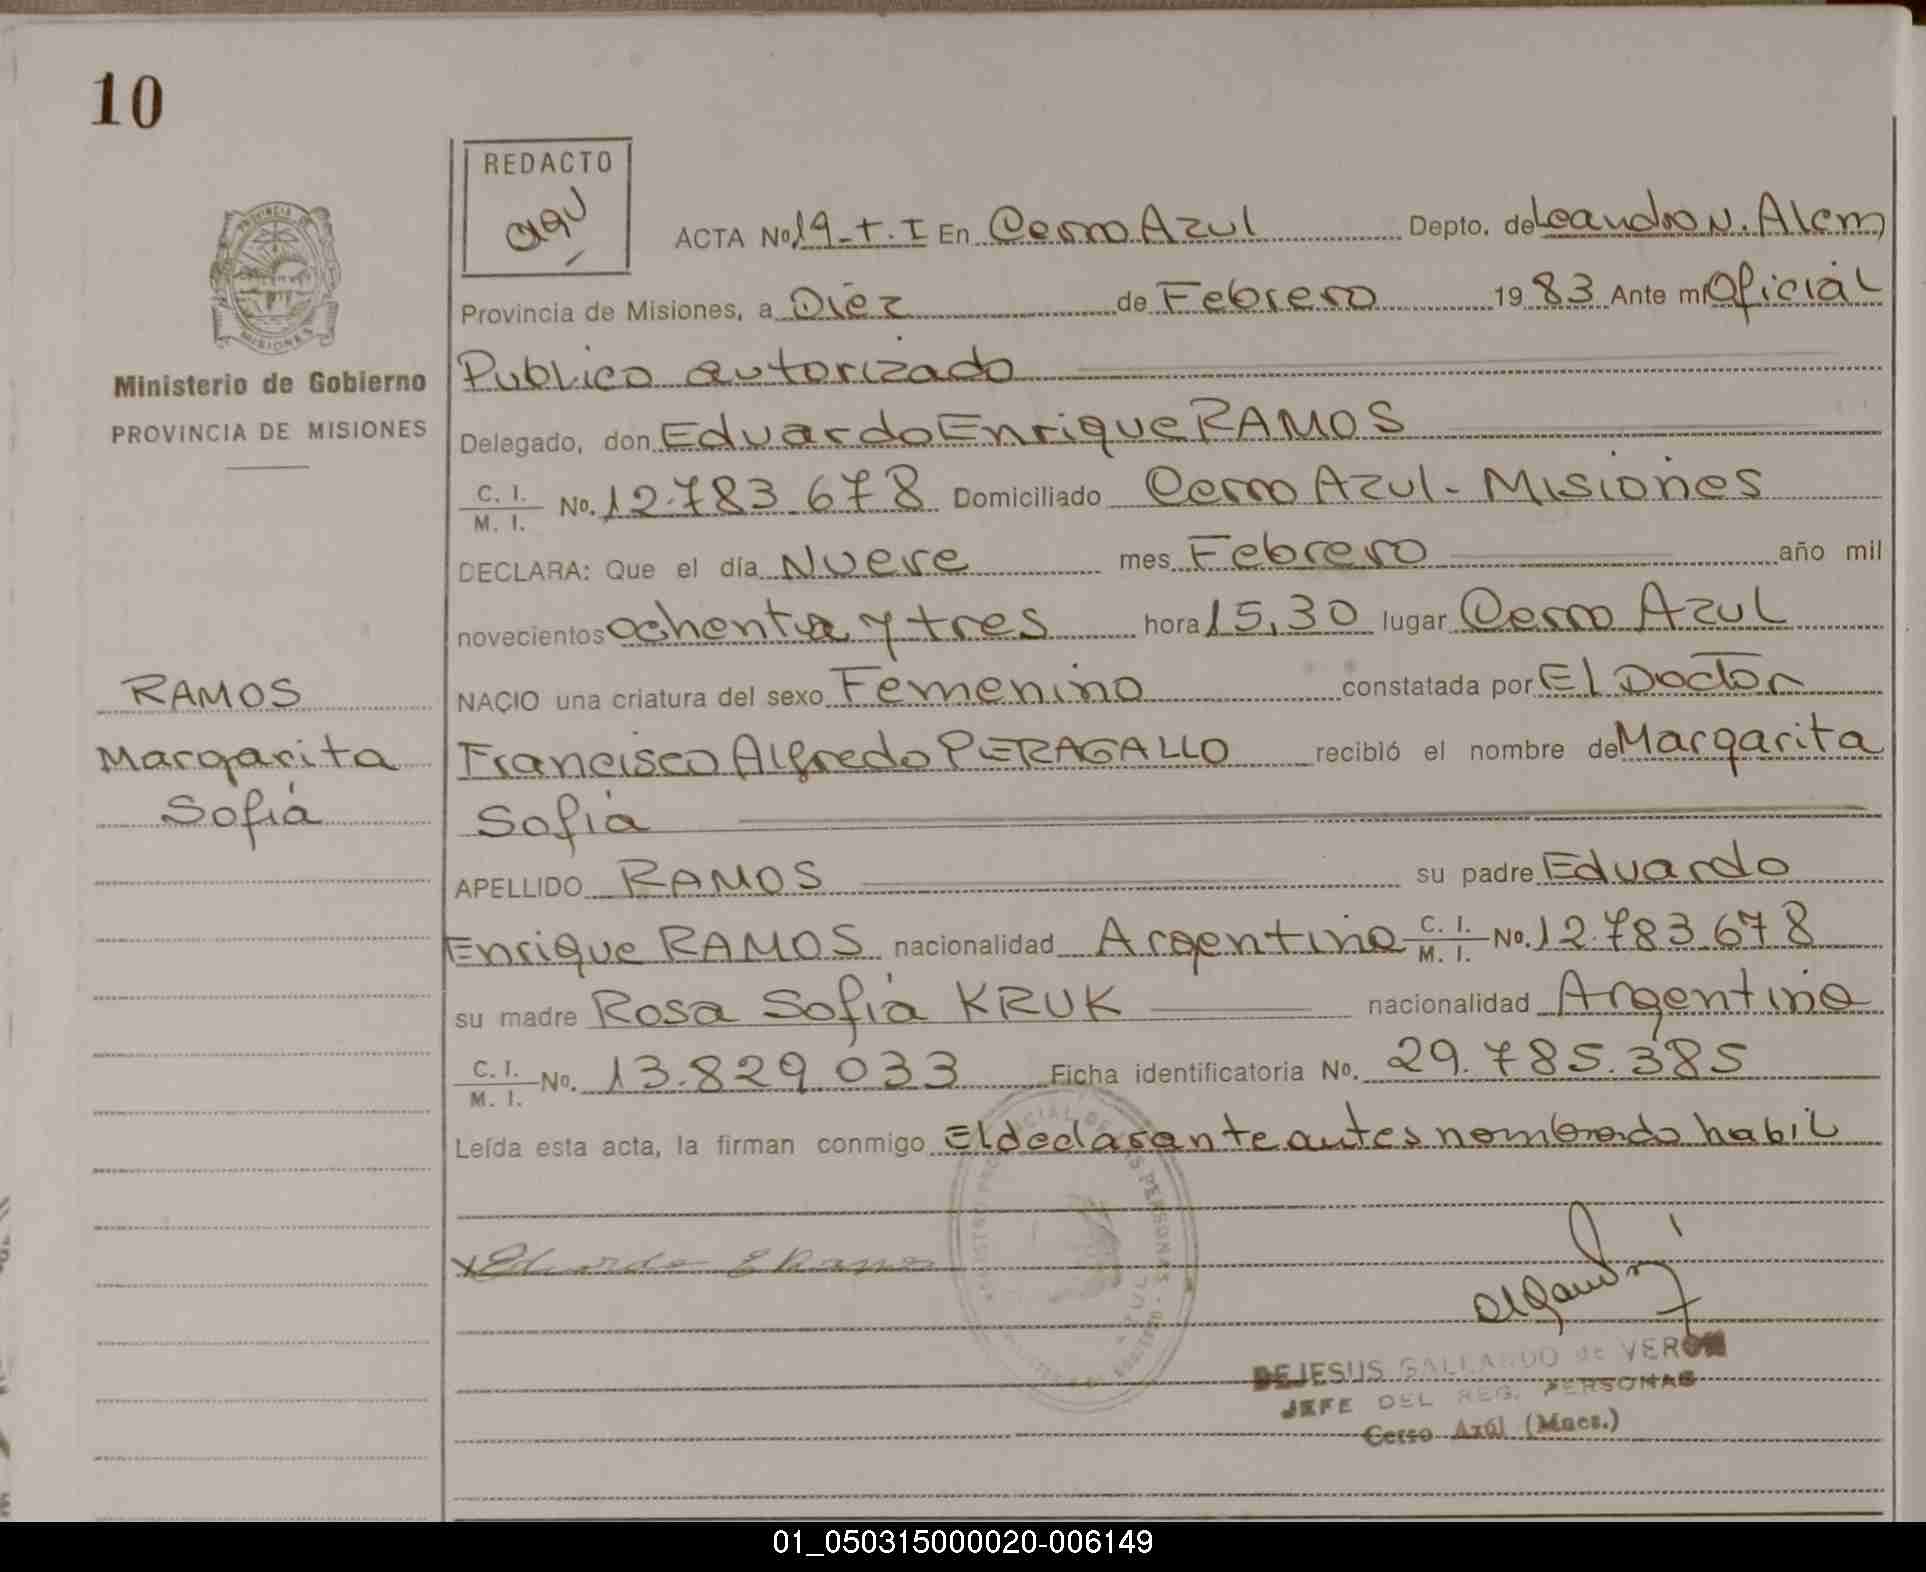 10
REDACTO
PROVINCIA DE
MISIONES
Ministerio de Gobierno
PROVINCIA DE MISIONES
RAMOS
Margarita
Sofía
ACTA No 19_T.I En Cerro Azul Depto. de Leandro N. Alem
Provincia de Misiones, a Diez de Febrero 19 83 Ante mi Oficial
Publico autorizado
Delegado, don Eduardo Enrique RAMOS
C. I. / M. I. No. 12.783.678 Domiciliado Cerro Azul - Misiones
DECLARA: Que el día Nueve mes Febrero año mil
novecientos ochenta y tres hora 15,30 lugar Cerro Azul
NACIO una criatura del sexo Femenino constatada por El Doctor
Francisco Alfredo PERAGALLO recibió el nombre de Margarita
Sofía
APELLIDO RAMOS su padre Eduardo
Enrique RAMOS nacionalidad Argentino C. I. / M. I. No. 12.783.678
su madre Rosa Sofía KRUK nacionalidad Argentina
C. I. / M. I. No. 13.829.033 Ficha identificatoria No. 29.785.385
Leída esta acta, la firman conmigo El declarante antes nombrado habil
Eduardo E Ramos
DEJESUS GALLARDO de VERON
JEFE DEL REG. PERSONAS
Cerro Azúl (Mnes.)
01_050315000020-006149